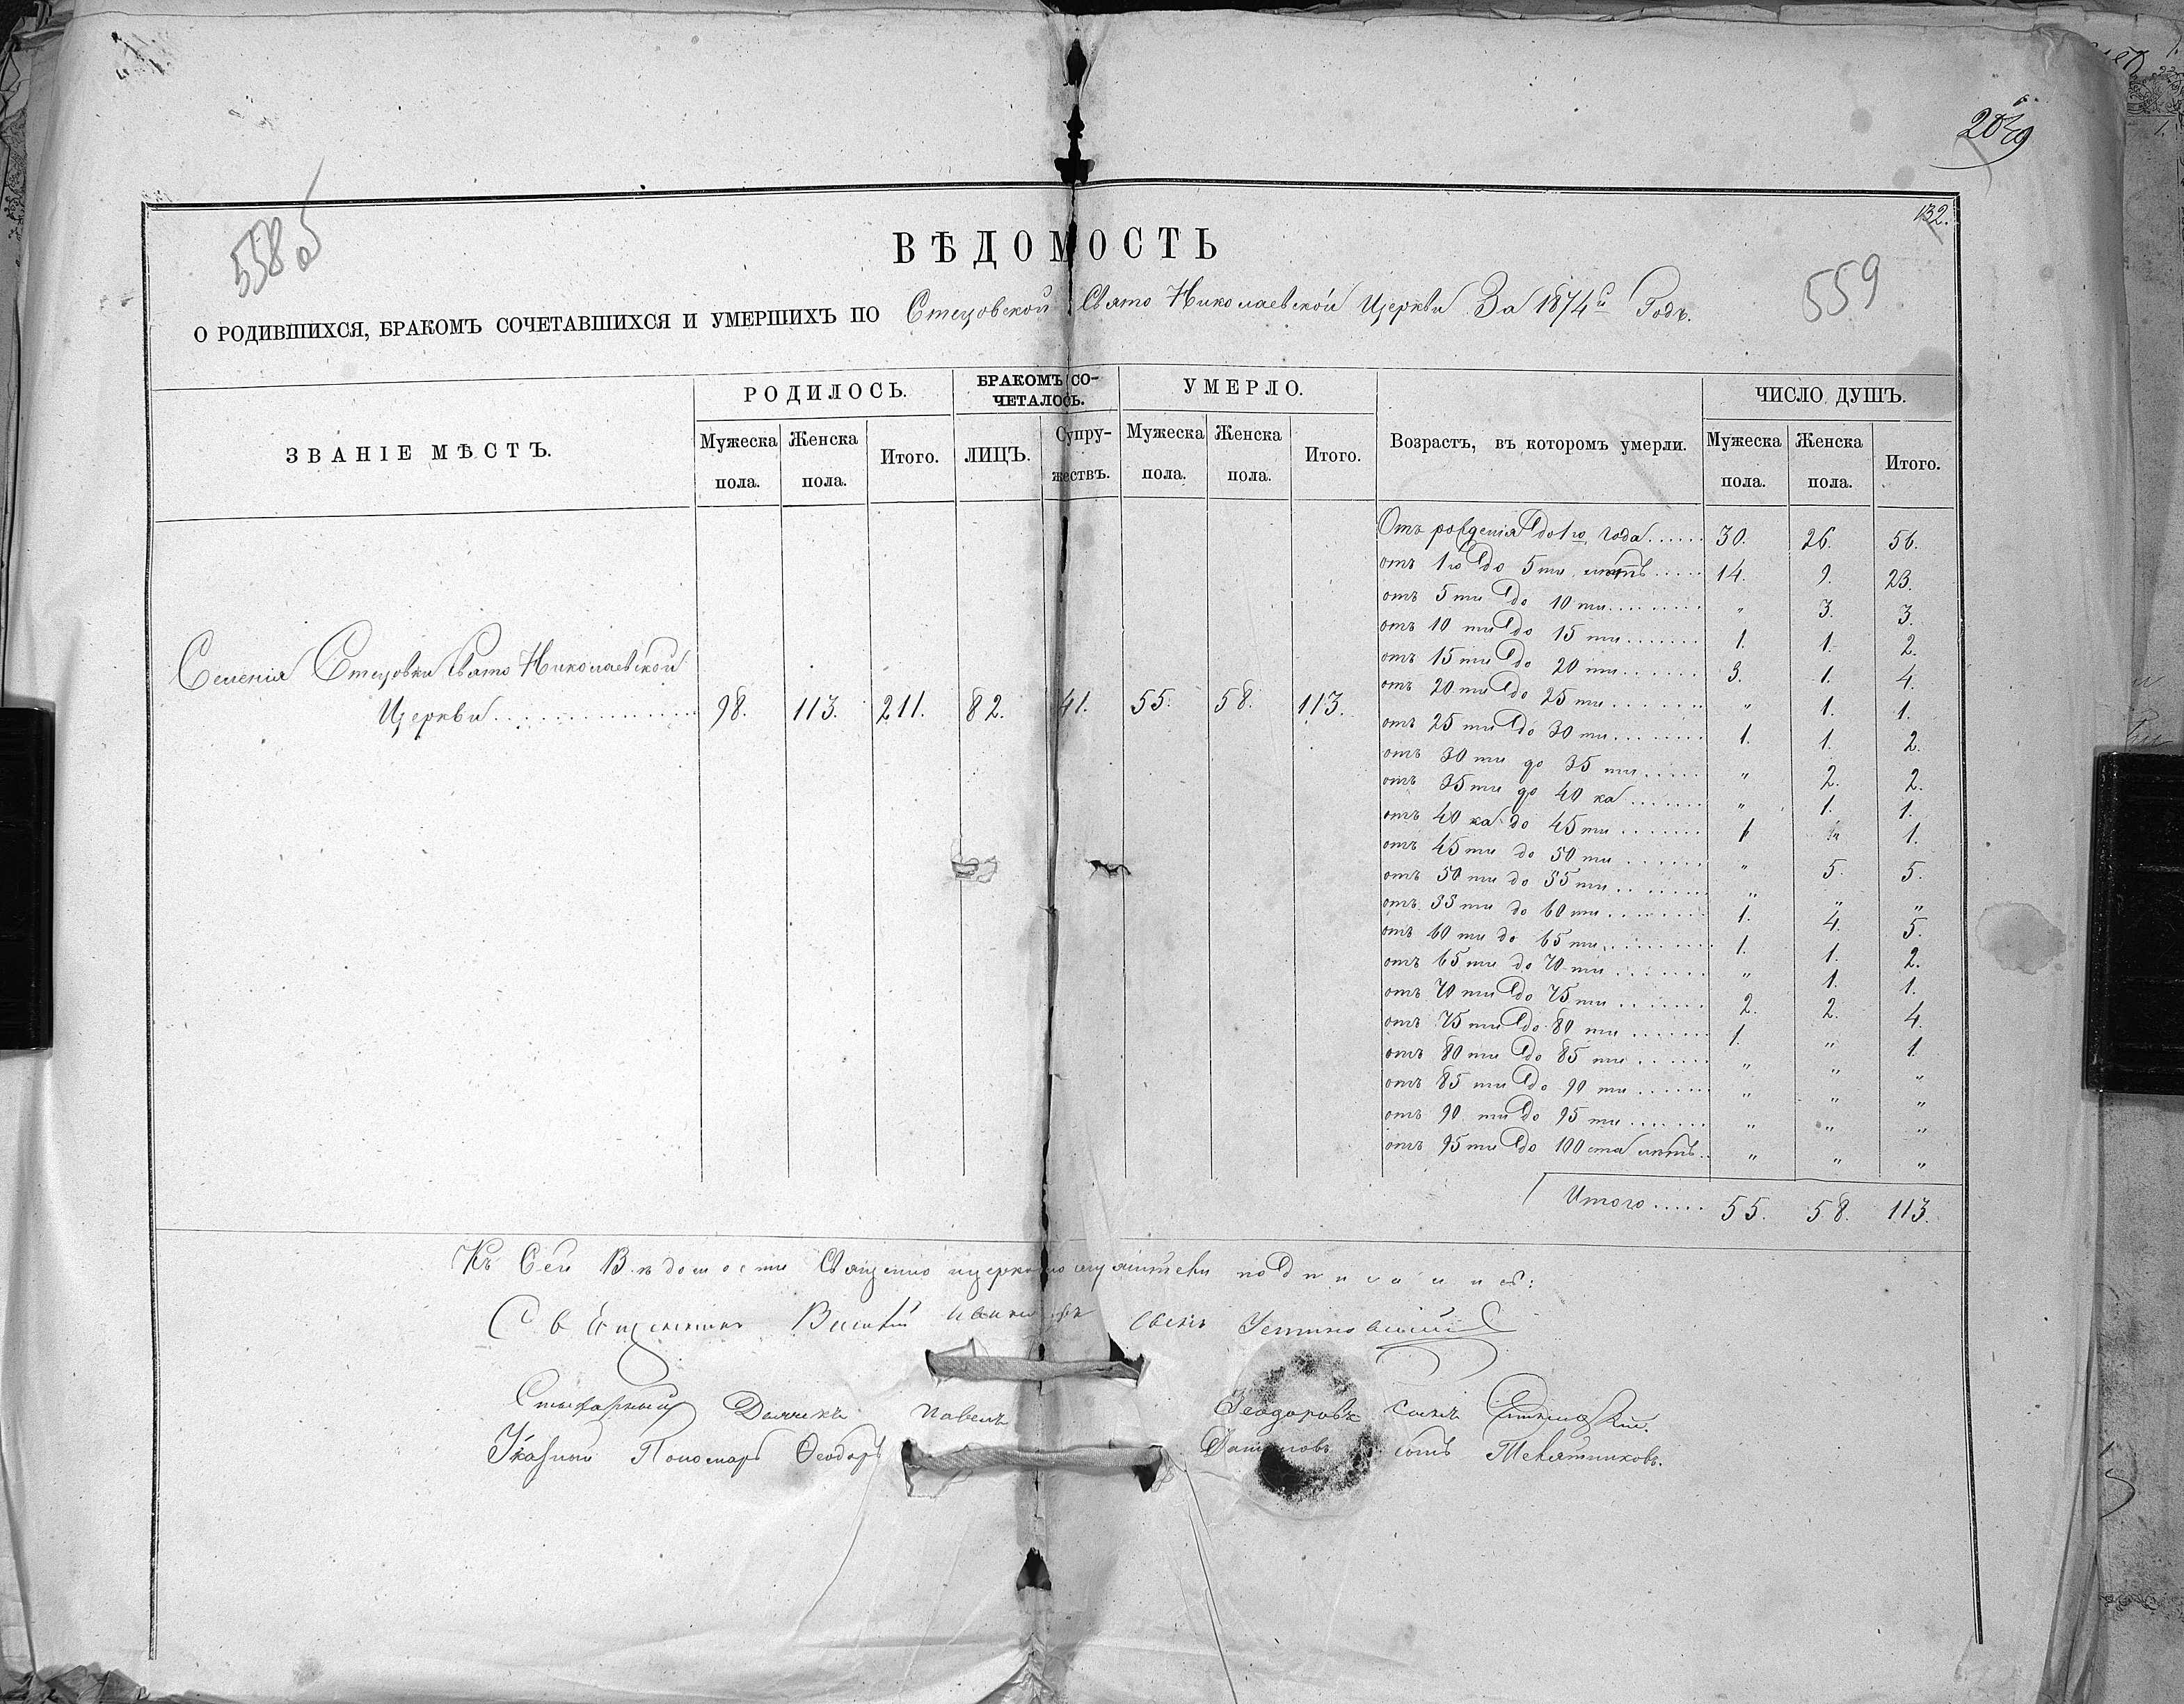 132.
558 об
559
ВѢДОМОСТЬ
О РОДИВШИХСЯ, БРАКОМЪ СОЧЕТАВШИХСЯ И УМЕРШИХЪ ПО Стецовской Свято Николаевской Церкви За 1874й Годъ.
ЗВАНІЕ МѢСТЪ. РОДИЛОСЬ. БРАКОМЪ СО-ЧЕТАЛОСЬ. УМЕРЛО. Возрастъ, въ которомъ умерли. ЧИСЛО ДУШЪ.
Мужеска пола. Женска пола. Итого. ЛИЦЪ. Супру-жествъ. Мужеска пола. Женска пола. Итого. Мужеска пола. Женска пола. Итого.
Селенія Стецовки Свято Николаевской
Церкви 98. 113. 211. 82. 41. 55. 58. 113.
Отъ рожденія до 1го года 30. 26. 56.
отъ 1го до 5ти лѣтъ 14. 9. 23.
отъ 5ти до 10ти „ 3. 3.
отъ 10ти до 15ти 1. 1. 2.
отъ 15ти до 20ти 3. 1. 4.
отъ 20ти до 25ти „ 1. 1.
отъ 25ти до 30ти 1. 1. 2.
отъ 30ти до 35ти „ 2. 2.
отъ 35ти до 40ка „ 1. 1.
отъ 40ка до 45ти 1 „ 1.
отъ 45ти до 50ти „ 5. 5.
отъ 50ти до 55ти „ „ „
отъ 55ти до 60ти 1. 4. 5.
отъ 60ти до 65ти 1. 1. 2.
отъ 65ти до 70ти „ 1. 1.
отъ 70ти до 75ти 2. 2. 4.
отъ 75ти до 80ти 1. „ 1.
отъ 80ти до 85ти „ „ „
отъ 85ти до 90ти „ „ „
отъ 90ти до 95ти „ „ „
отъ 95ти до 100ста лѣтъ „ „ „
Итого 55. 58. 113.
Къ Сей Вѣдомости Священно церковно служители подписались:
Священникъ сынъ
Дьячекъ Павелъ Ѳеодоровъ сынъ
Указный Пономарь Ѳеодоръ сынъ